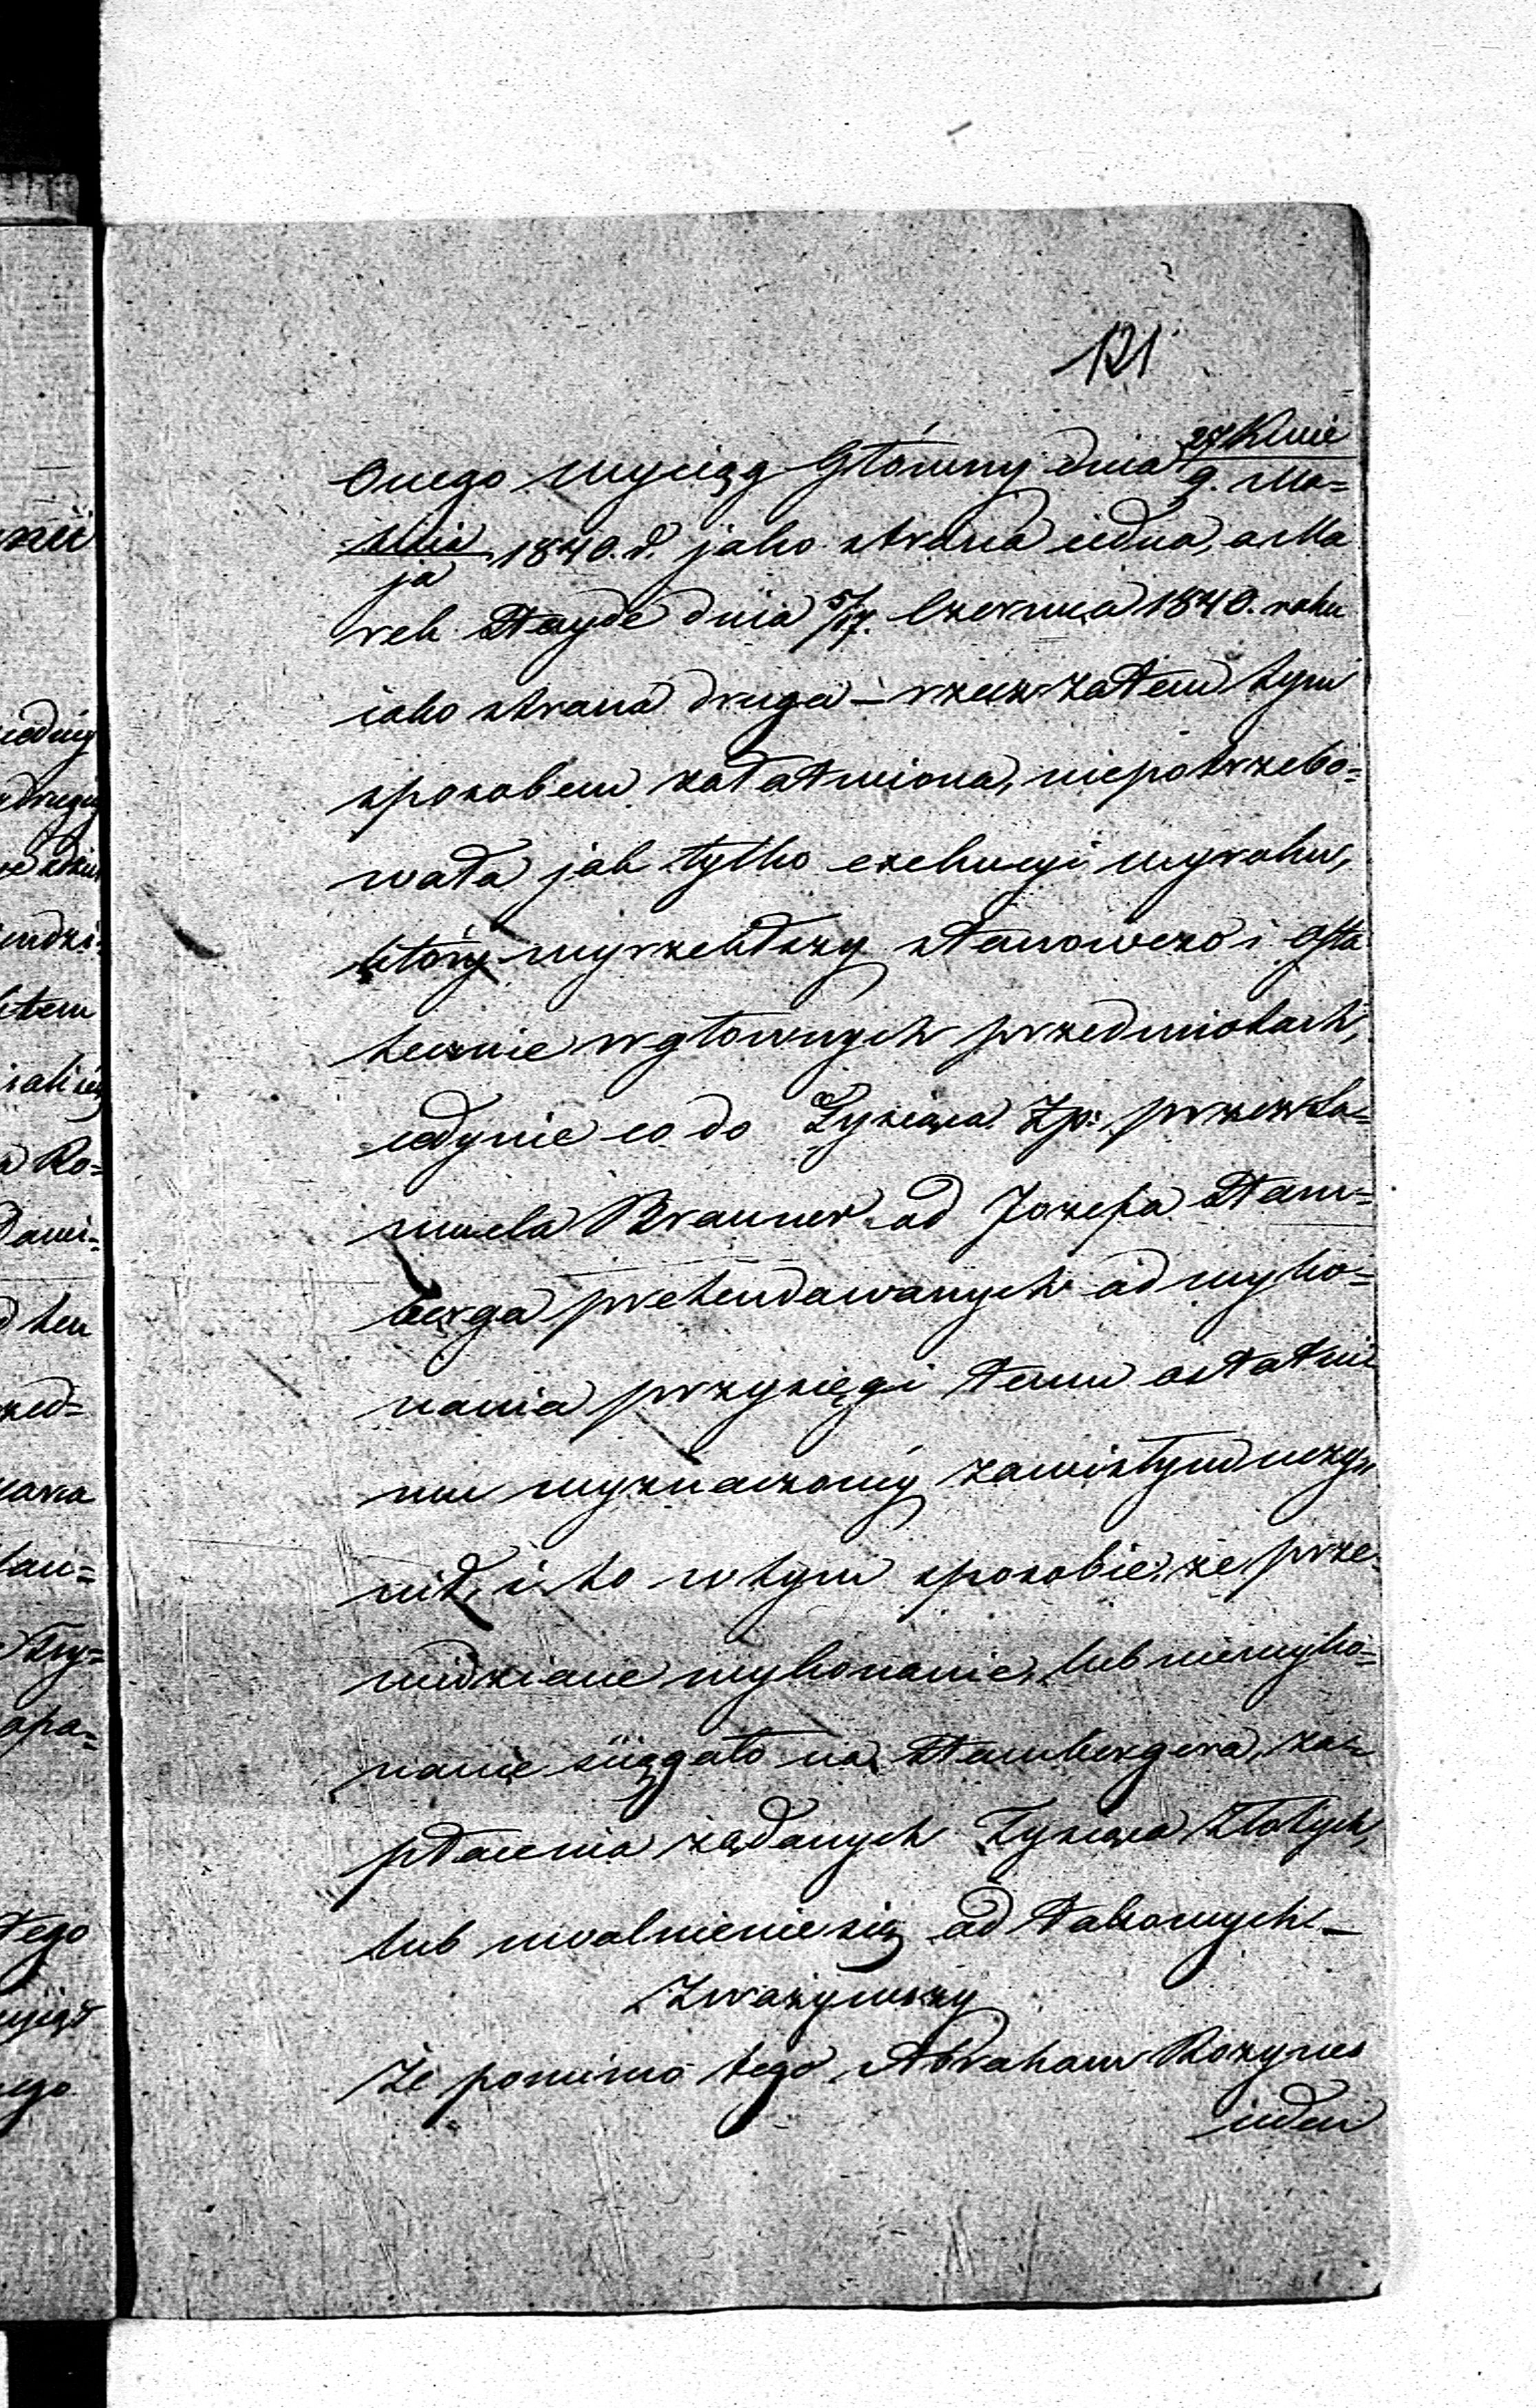 121
Onego wyciąg Główny dnia 27 Kwie
9. Ma=
=tnia 1840. d. jako strona iedna, a Ma
ja
rek Stayde dnia 5/17. Czerwca 1840. roku
iako strona druga – rzecz zatem tym
sposobem załatwiona, niepotrzebo=
wała jak tylko exekucyi wyroku,
który wyrzekłszy stanowczo i osta
tecznie w głownych przedmiotach,
iedynie co do Tysiąca Zp: przez Sa=
muela Brauner od Jozefa Stam=
berga pretendowanych od wyko=
nania przysięgi temu ostatnie
mu wyznaczonéy zawisłym uczy=
nił, i to w tym sposobie, że prze
widziane wykonanie, lub niewyko=
nanie siięgało na Stambergera, za=
płacenia żądanych Tysiąca Złotych,
lub uwolnienie się od takowych –
Zważywszy
Że pomimo tego Abraham Rozynes
ieden
nii
iedney
drugiey
ten
Ro=
tego